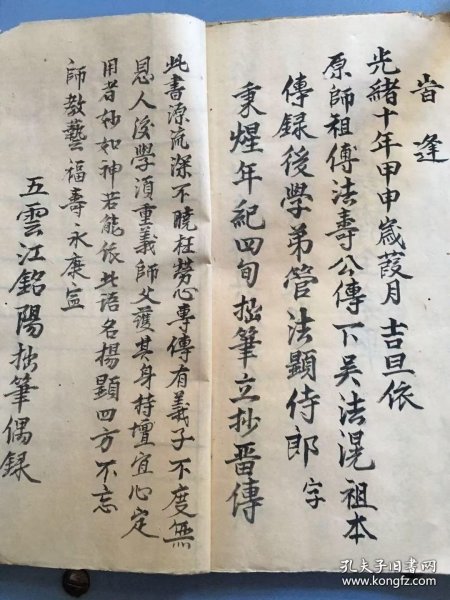 旹逢
光緒十年甲申歲葭月吉旦依
原師祖傳法壽公傳下吴法滉祖本
傳録後學弟管法顯侍郎字
秉煋年紀四旬拙筆立抄晋傳
此書源流深不曉枉勞心專傳有義子不度無
恩人後學須重義師父護其身持壇宜心定
用者妙如神若能依此語名楊顯四方不忘
師教藝福壽永康宜
五雲江銘陽拙筆偶録
孔夫子旧书网
www.kongfz.com